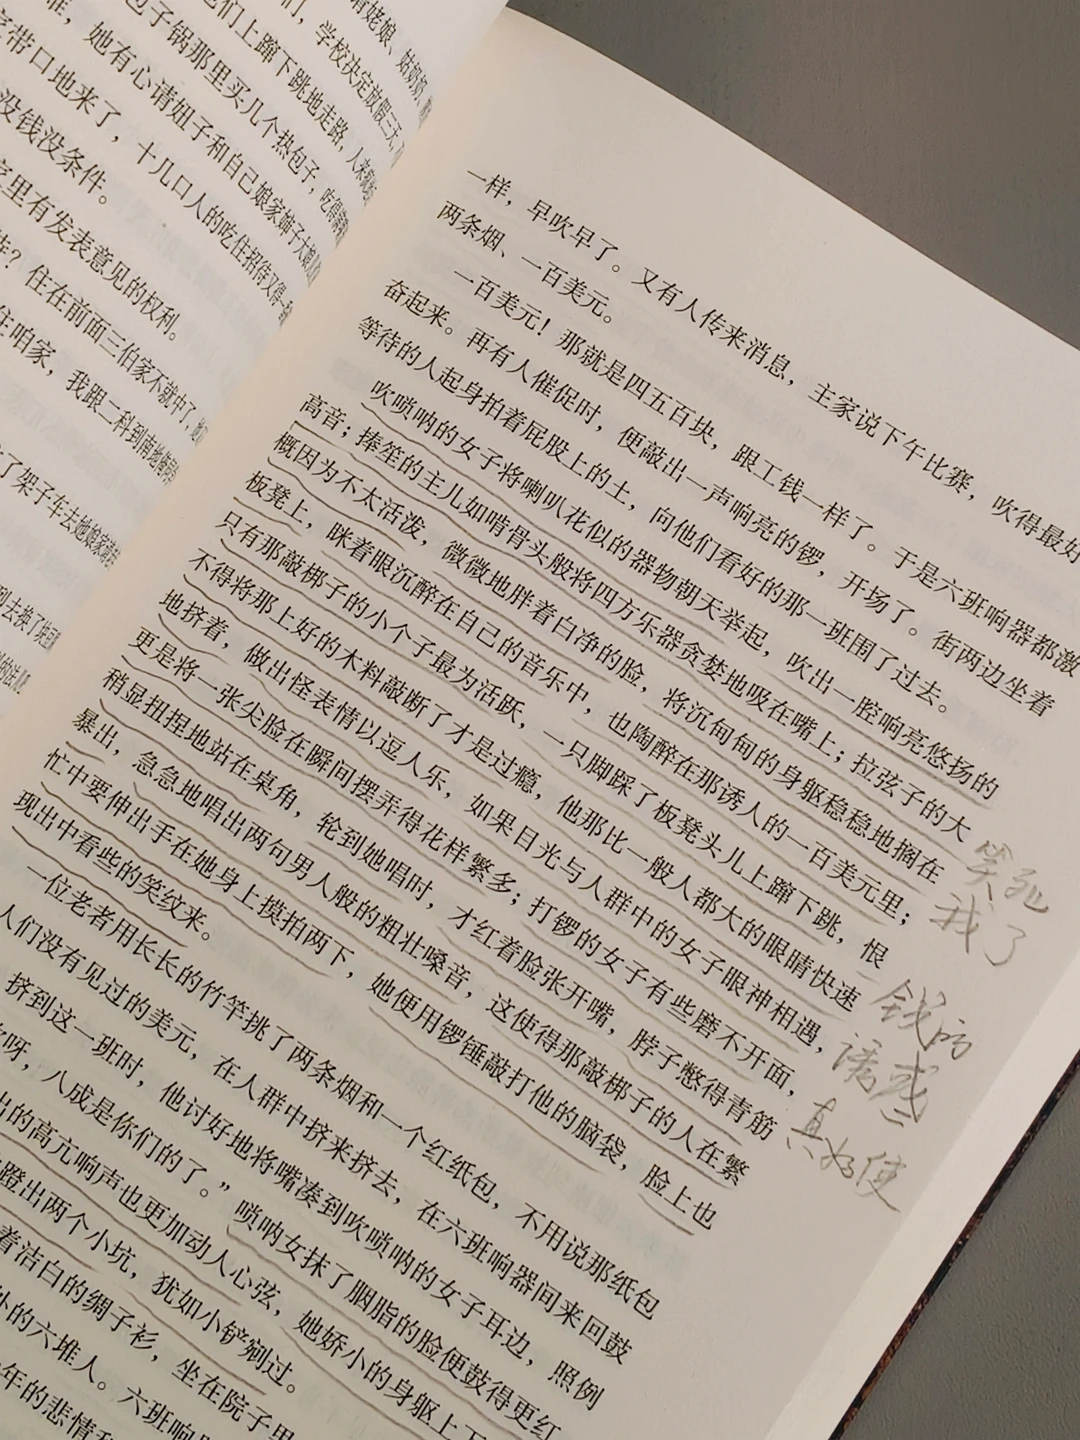 有姥娘、姑奶奶，
们，学校决定放假三天，
他们上蹿下跳地走路，人来疯
包子锅那里买几个热包子，吃得满
她有心请妞子和自己娘家婶子大娘
带口地来了，十几口人的吃住招待又得
没钱没条件。
家里有发表意见的权利。
住在前面三伯家不就中了，
住咱家，我跟二科到南地
了架子车去她娘家
一样，早吹早了。又有人传来消息，主家说下午比赛，吹得最好
两条烟、一百美元。
一百美元！那就是四五百块，跟工钱一样了。于是六班响器都激
奋起来。再有人催促时，便敲出一声响亮的锣，开场了。街两边坐着
等待的人起身拍着屁股上的土，向他们看好的那一班围了过去。
吹唢呐的女子将喇叭花似的器物朝天举起，吹出一腔响亮悠扬的
高音；捧笙的主儿如啃骨头般将四方乐器贪婪地吸在嘴上；拉弦子的大
概因为不太活泼，微微地胖着白净的脸，将沉甸甸的身躯稳稳地搁在
板凳上，眯着眼沉醉在自己的音乐中，也陶醉在那诱人的一百美元里；
只有那敲梆子的小个子最为活跃，一只脚踩了板凳头儿上蹿下跳，恨
不得将那上好的木料敲断了才是过瘾，他那比一般人都大的眼睛快速
地挤着，做出怪表情以逗人乐，如果目光与人群中的女子眼神相遇，
更是将一张尖脸在瞬间摆弄得花样繁多；打锣的女子有些磨不开面，
稍显扭捏地站在桌角，轮到她唱时，才红着脸张开嘴，脖子憋得青筋
暴出，急急地唱出两句男人般的粗壮嗓音，这使得那敲梆子的人在繁
忙中要伸出手在她身上摸拍两下，她便用锣锤敲打他的脑袋，脸上也
现出中看些的笑纹来。
一位老者用长长的竹竿挑了两条烟和一个红纸包，不用说那纸包
人们没有见过的美元，在人群中挤来挤去，在六班响器间来回鼓
挤到这一班时，他讨好地将嘴凑到吹唢呐的女子耳边，照例
呀，八成是你们的了。”唢呐女抹了胭脂的脸便鼓得更红
出的高亢响声也更加动人心弦，她娇小的身躯上下
蹬出两个小坑，犹如小铲剜过。
着洁白的绸子衫，坐在院子里
外的六堆人。六班响
年的悲情
笑死
我了
钱的
诱惑
真好使